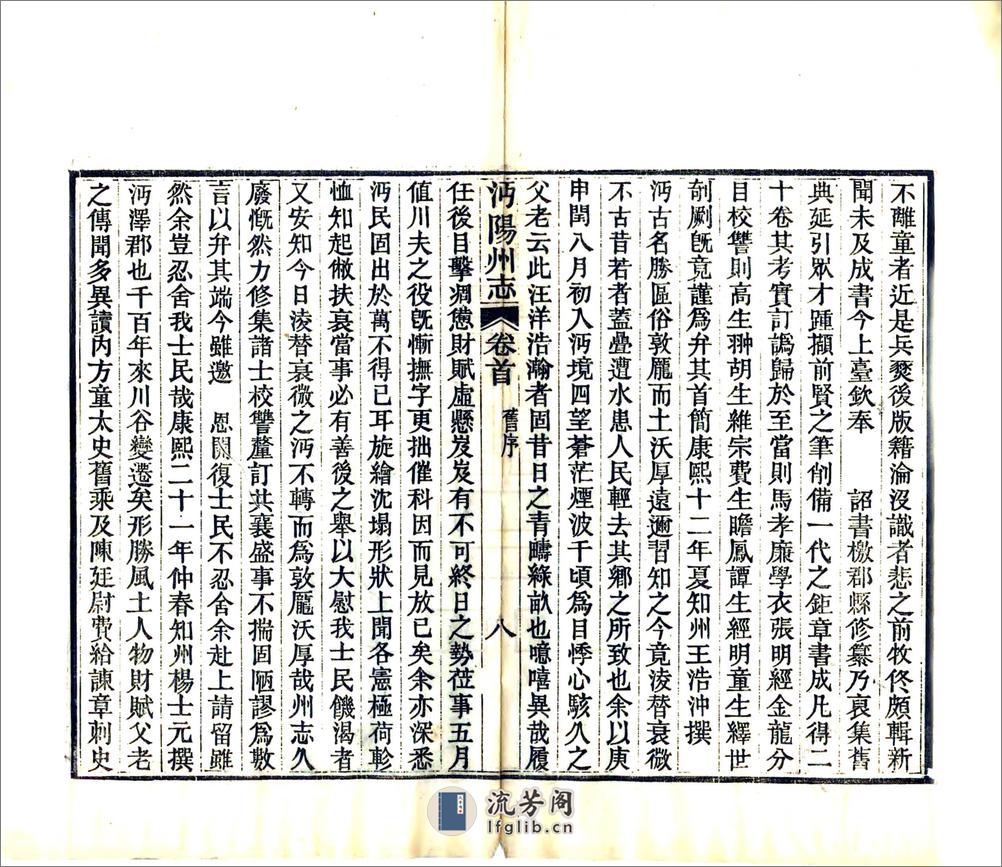 不離童者近是兵燹後版籍淪沒識者悲之前牧佟頗輯新
聞未及成書今上臺欽奉　詔書檄郡縣修纂乃裒集舊
典延引眾才踵擷前賢之筆削備一代之鉅章書成凡得二
十卷其考實訂譌歸於至當則馬孝廉學衣張明經金龍分
目校讐則高生翀胡生維宗費生瞻鳳譚生經明童生繹世
剞劂旣竟謹爲弁其首簡康熙十二年夏知州王浩沖撰
沔古名勝區俗敦厖而土沃厚遠邇習知之今竟淩替衰微
不古昔若者蓋疊遭水患人民輕去其鄉之所致也余以庚
申閏八月初入沔境四望蒼茫煙波千頃爲目悸心駭久之
父老云此汪洋浩瀚者固昔日之青疇綠畝也噫嘻異哉履
沔陽州志
卷首
舊序
八
任後目擊凋憊財賦虛懸岌岌有不可終日之勢莅事五月
値川夫之役旣慚撫字更拙催科因而見放已矣余亦深悉
沔民固出於萬不得已耳旋繪沈塌形狀上聞各憲極荷軫
恤知起敝扶衰當事必有善後之舉以大慰我士民饑渴者
又安知今日淩替衰微之沔不轉而爲敦厖沃厚哉州志久
廢慨然力修集諸士校讐釐訂共襄盛事不揣固陋謬爲數
言以弁其端今雖邀　恩開復士民不忍舍余赴上請留雖
然余豈忍舍我士民哉康熙二十一年仲春知州楊士元撰
沔澤郡也千百年來川谷變遷矣形勝風土人物財賦父老
之傳聞多異讀內方童太史舊乘及陳廷尉費給諫章刺史
流芳阁
lfglib.cn